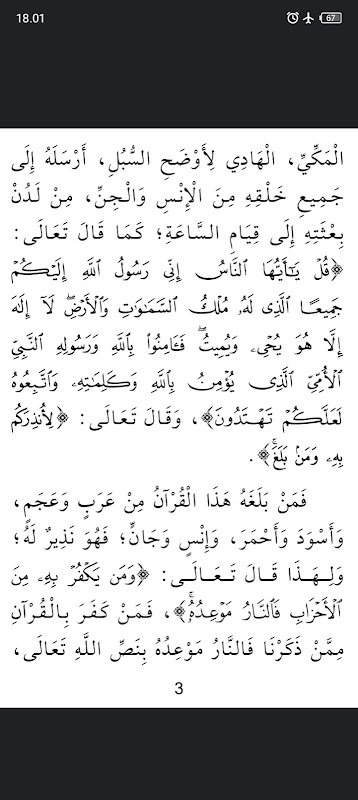 18.01
67
الْمَكِّيِّ، الْهَادِي لِأَوْضَحِ السُّبُلِ، أَرْسَلَهُ إِلَى
جَمِيعِ خَلْقِهِ مِنَ الْإِنْسِ وَالْجِنِّ، مِنْ لَدُنْ
بِعْثَتِهِ إِلَى قِيَامِ السَّاعَةِ؛ كَمَا قَالَ تَعَالَى:
﴿قُلْ يَـٰٓأَيُّهَا ٱلنَّاسُ إِنِّى رَسُولُ ٱللَّهِ إِلَيْكُمْ
جَمِيعًا ٱلَّذِى لَهُۥ مُلْكُ ٱلسَّمَـٰوَٰتِ وَٱلْأَرْضِۖ لَآ إِلَـٰهَ
إِلَّا هُوَ يُحْىِۦ وَيُمِيتُۖ فَـَٔامِنُوا۟ بِٱللَّهِ وَرَسُولِهِ ٱلنَّبِىِّ
ٱلْأُمِّىِّ ٱلَّذِى يُؤْمِنُ بِٱللَّهِ وَكَلِمَـٰتِهِۦ وَٱتَّبِعُوهُ
لَعَلَّكُمْ تَهْتَدُونَ﴾، وَقَالَ تَعَالَى: ﴿لِأُنذِرَكُم
بِهِۦ وَمَنۢ بَلَغَۚ﴾.
فَمَنْ بَلَغَهُ هَذَا الْقُرْآنُ مِنْ عَرَبٍ وَعَجَمٍ،
وَأَسْوَدَ وَأَحْمَرَ، وَإِنْسٍ وَجَانٍّ؛ فَهُوَ نَذِيرٌ لَهُ؛
وَلِهَذَا قَالَ تَعَالَى: ﴿وَمَن يَكْفُرْ بِهِۦ مِنَ
ٱلْأَحْزَابِ فَٱلنَّارُ مَوْعِدُهُۥۚ﴾، فَمَنْ كَفَرَ بِالْقُرْآنِ
مِمَّنْ ذَكَرْنَا فَالنَّارُ مَوْعِدُهُ بِنَصِّ اللَّهِ تَعَالَى،
3